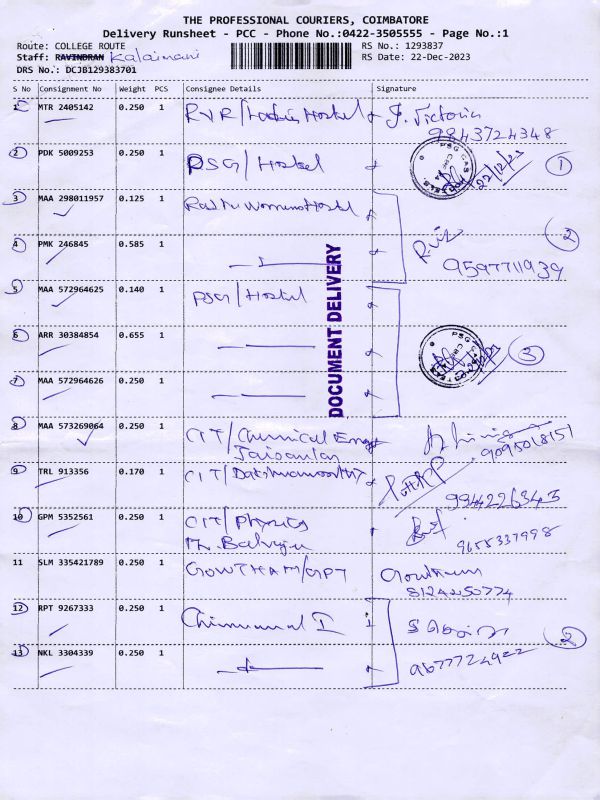 THE PROFESSIONAL COURIERS, COIMBATORE
Delivery Runsheet - PCC - Phone No.:0422-3505555 - Page No.:1
Route: COLLEGE ROUTE RS No.: 1293837
Staff: RAVINDRAN Kalaimani RS Date: 22-Dec-2023
DRS No.: DCJB129383701
S No Consignment No Weight PCS Consignee Details Signature
1 MTR 2405142 0.250 1 RVR/Ladies Hostel J. Victoria
9843724348
2 PDK 5009253 0.250 1 PSG/Hostel 22/12/23 1
3 MAA 298011957 0.125 1 Womens Hostel
4 PMK 246845 0.585 1 2
9597711939
5 MAA 572964625 0.140 1 PSG/Hostel
6 ARR 30384854 0.655 1 3
7 MAA 572964626 0.250 1
DOCUMENT DELIVERY
8 MAA 573269064 0.250 1 CIT/Chemical Engg
9095018151
9 TRL 913356 0.170 1 CIT/
9944226343
10 GPM 5352561 0.250 1 CIT/Physics
9655337998
11 SLM 335421789 0.250 1 GOWTHAM/GPT Gowtham
8124250774
12 RPT 9267333 0.250 1 2
13 NKL 3304339 0.250 1 9677724922